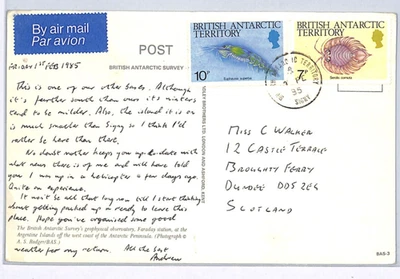 By air mail
Par avion
POST
BRITISH ANTARCTIC SURVEY
BRITISH ANTARCTIC
TERRITORY
10p
BRITISH ANTARCTIC
TERRITORY
7p
Serolis cornuta
SIGNY
85
FRIDAY 1ST FEB 1985
This is one of our other bases. Although
it's further south than ours it's winters
tend to be milder. Also, the island it is on
is much smaller than Signy so I think I'd
rather be here than there.
No doubt mother keeps you up to date with
what news there is of me and will have told
you I was up in a helicopter a few days ago.
Quite an experience.
It won't be all that long now till I start thinking
about getting packed up & ready to leave this
place. Hope you've organised some good
The British Antarctic Survey's geophysical observatory, Faraday station, at the
Argentine Islands off the west coast of the Antarctic Peninsula. (Photograph:
A. S. Rodger/BAS.)
weather for my return. All the best
Andrew
MISS C WALKER
12 CASTLE TERRACE
BROUGHTY FERRY
DUNDEE DD5 2EG
SCOTLAND
BAS-3